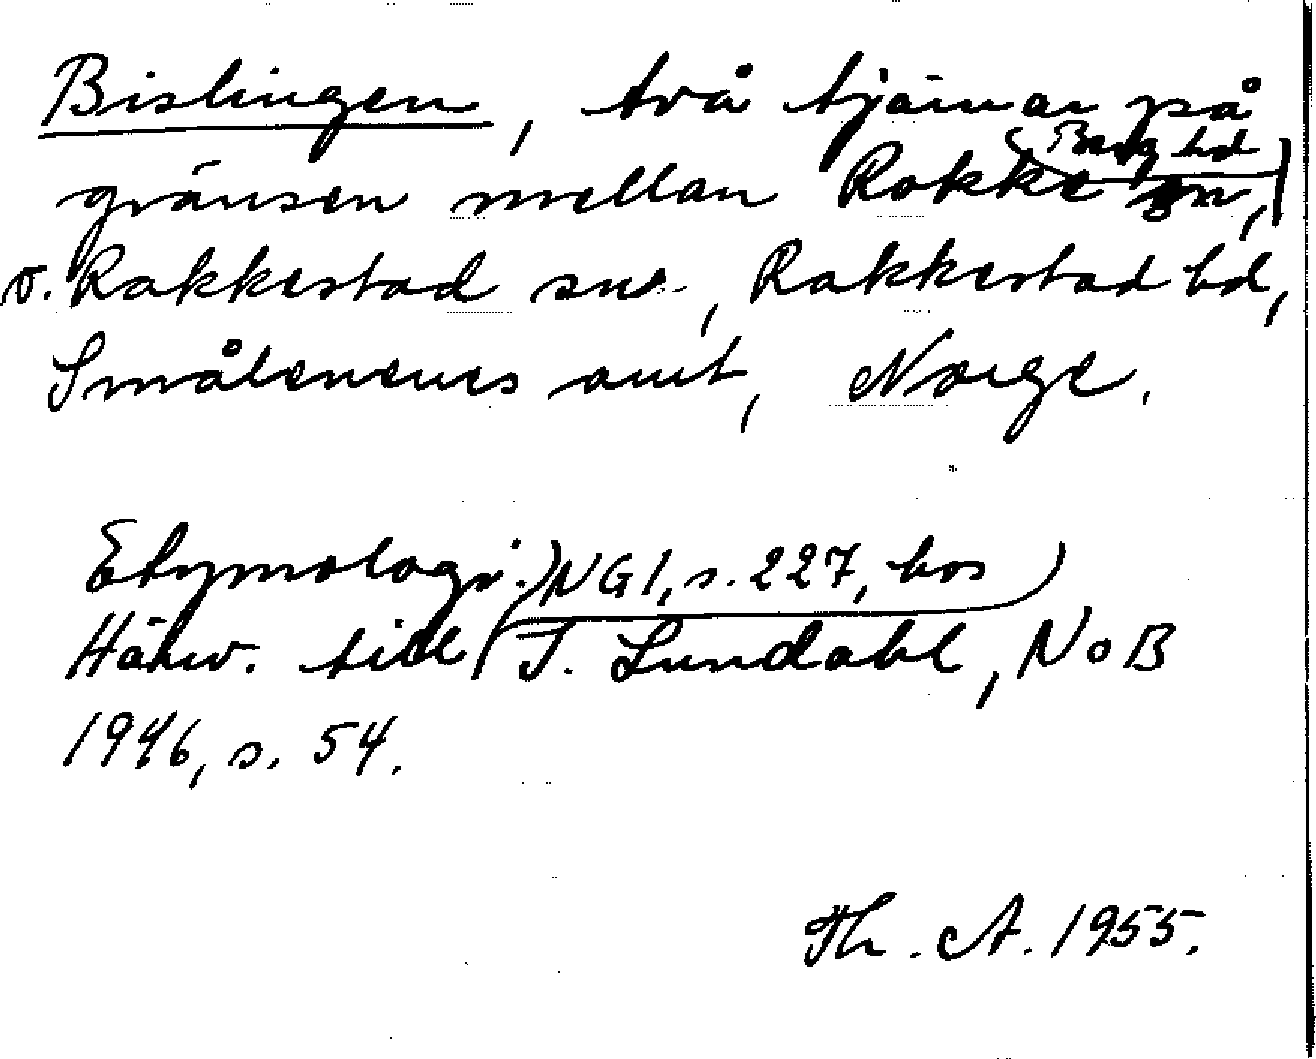 Bislingen, två tjärnar på
gränsen mellan Rokke sn, Berg hd
o. Rakkestad sn, Rakkestad hd,
Smålenenes amt, Norge.
Etymologi: NG 1, s. 227, hos
Hänv. till J. Lundahl, NoB
1946, s. 54.
Th. A. 1955.